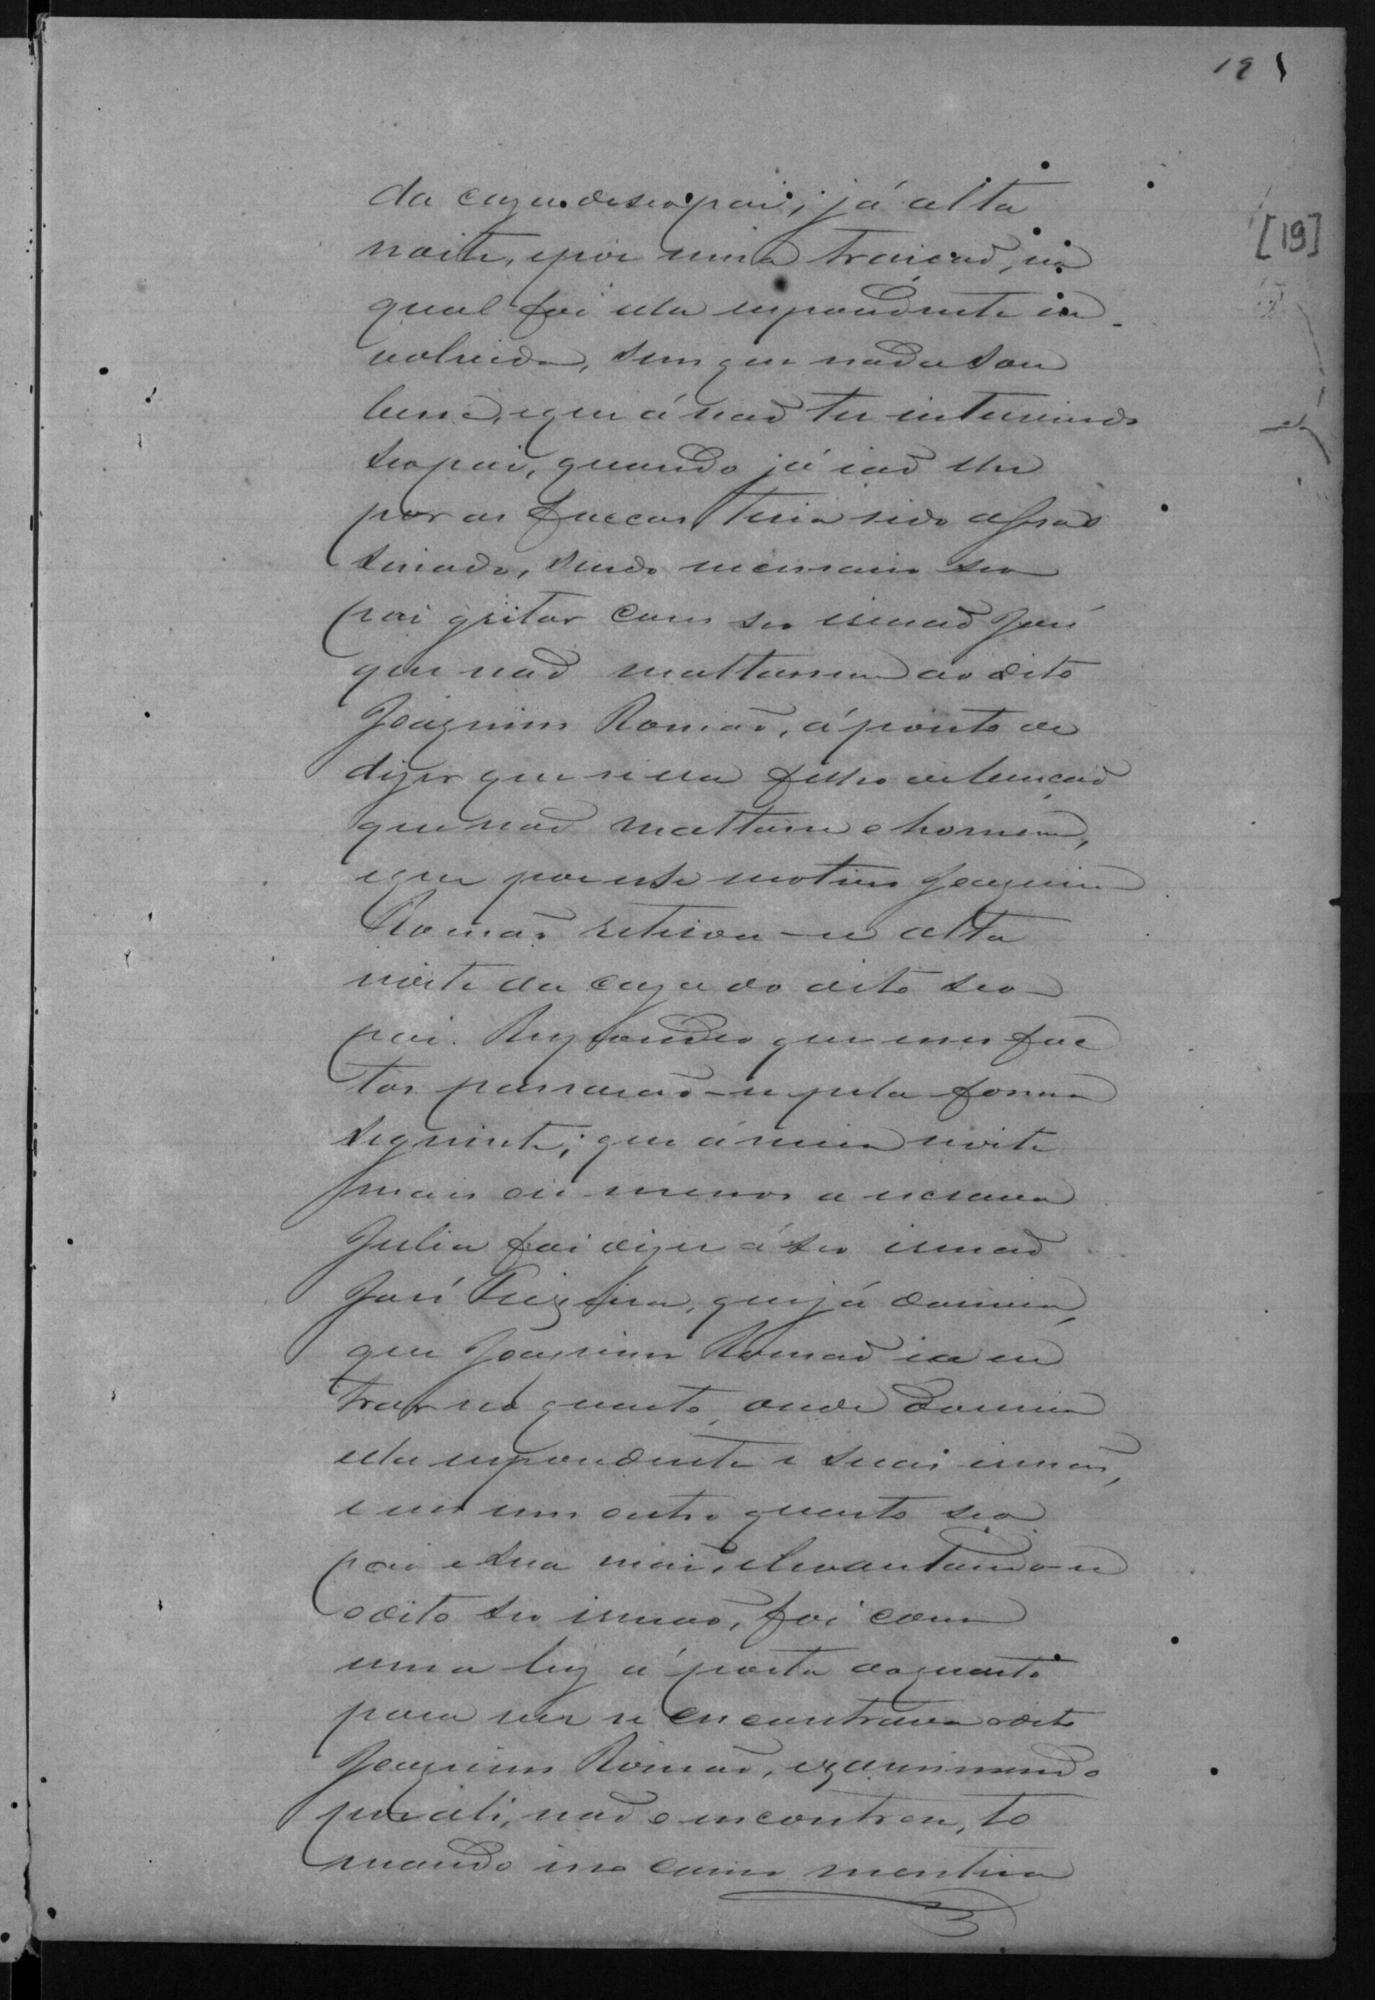 19
[19]
da caza de seo pai, já alta
noite, e por uma traicaõ, na
qual foi ella respondente in-
volvida, sem que nada sou
besse, e que á naõ ter intervindo
seo pai, quando já iaõ
por as faccas, teria sido assas
sinado, sendo necessario seo
pai gritar com seo irmaõ José
que naõ mattassem ao dito
Joaquim Romaõ, á ponto de
dizer que si era filho de bencaõ
que naõ mattasse o homem,
e que por este motivo Joaquim
Romaõ retirou-se alta
noite da caza do dito seo
pai. Respondeo que esses fac
tos passaraõ-se pela forma
seguinte; que á meia noite
mais ou menos a escrava
Julia foi dizer á seo irmaõ
José, que já dormia,
que Joaquim Romaõ ia en
trar no quarto, onde dormia
ella respondente e suas irmãs,
e em um outro quarto seo
pai e sua mãi, e levantando-se
o dito seo irmaõ, foi com
uma luz á porta do quarto
para ver se encontrava o dito
Joaquim Romaõ, examinando
por ali, naõ o encontrou, to
mando isso como mentira